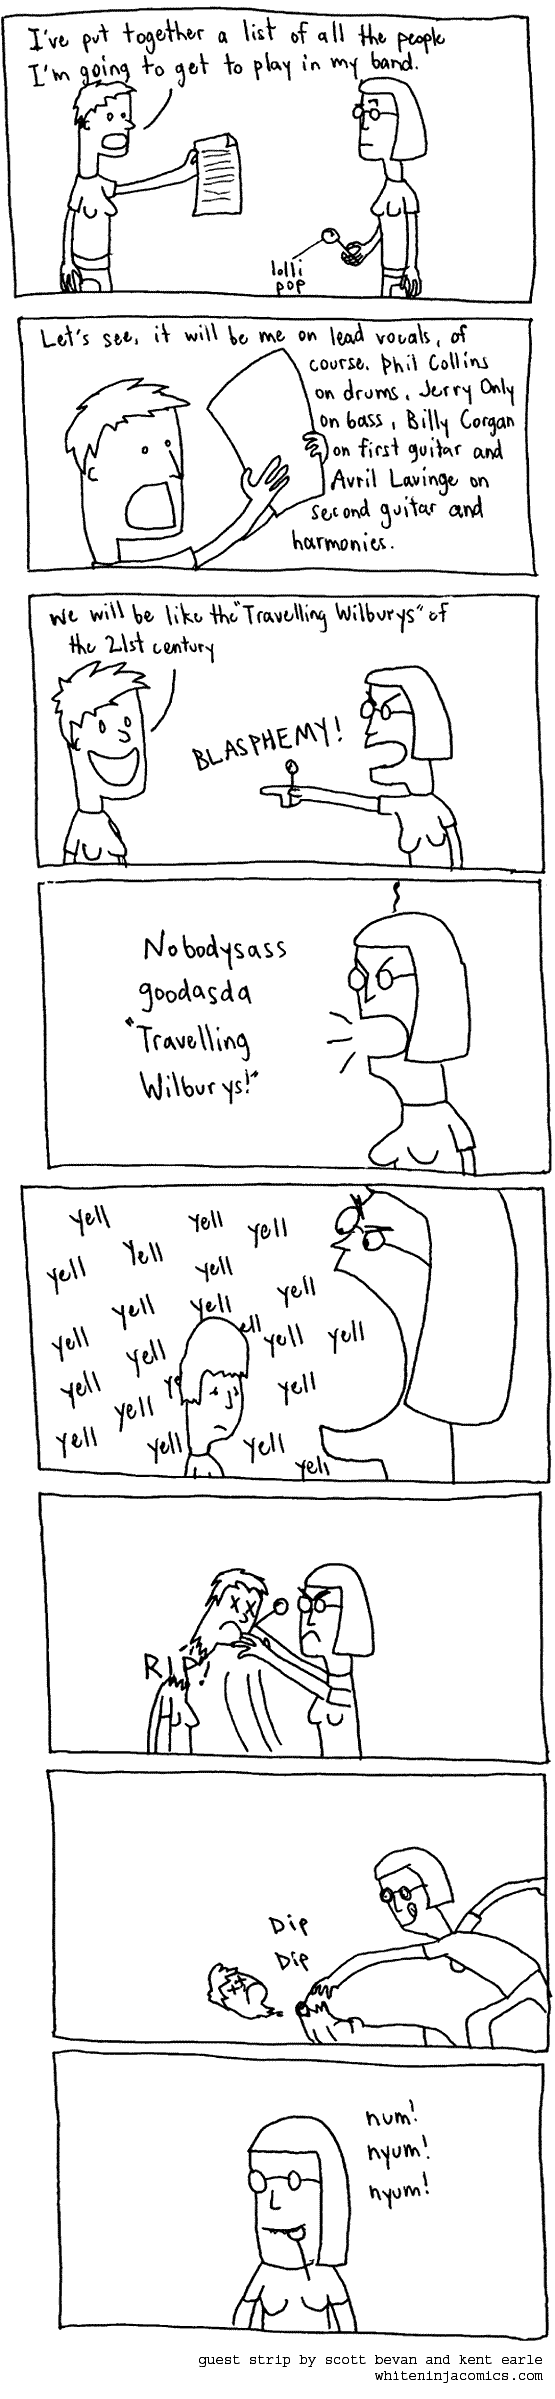 I've put together a list of all the people
I'm going to get to play in my band.
lolli
pop
Let's see, it will be me on lead vocals, of
course. Phil Collins
on drums, Jerry Only
on bass, Billy Corgan
on first guitar and
Avril Lavinge on
second guitar and
harmonies.
We will be like the "Travelling Wilburys" of
the 21st century
BLASPHEMY!
Nobodysass
goodasda
"Travelling
Wilburys!"
yell
yell
yell
yell
yell
yell
yell
yell
yell
yell
ell
yell
yell
yell
yell
ye
yell
yell
yell
yell
yell
yell
RIP!
Dip
Dip
num!
nyum!
nyum!
guest strip by scott bevan and kent earle
whiteninjacomics.com